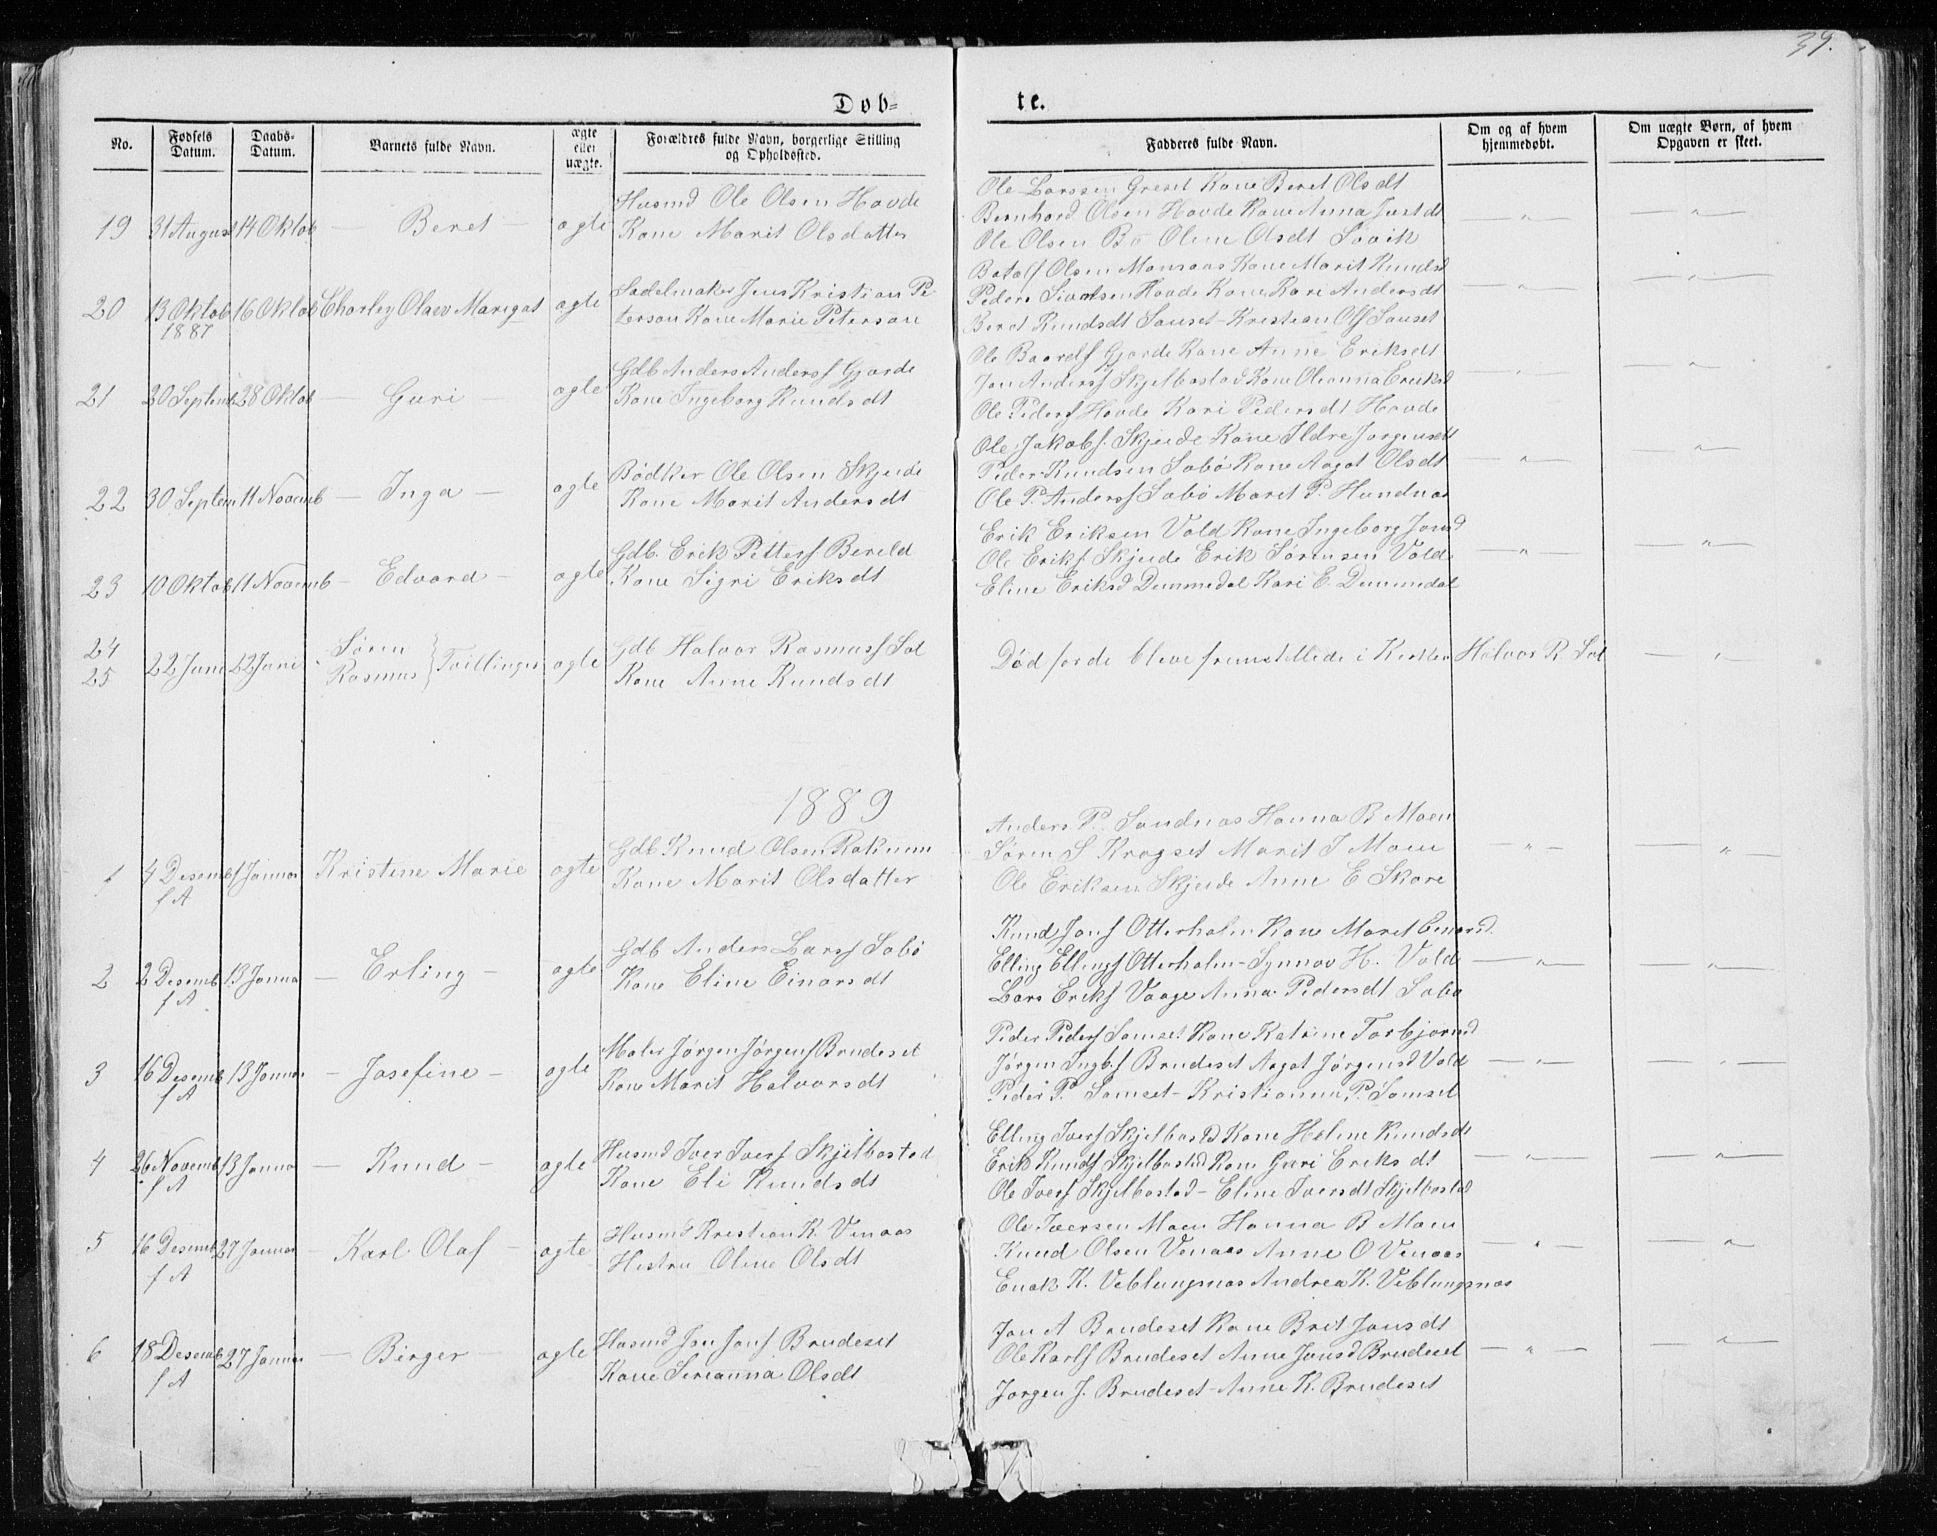 39.
Døb=
te.
No.
Fødsels Datum.
Daabs-Datum.
Barnets fulde Navn.
ægte eller uægte.
Forældres fulde Navn, borgerlige Stilling og Opholdssted.
Fadderes fulde Navn.
Om og af hvem hjemmedøbt.
Om uægte Børn, af hvem Opgaven er skeet.
19 31 August 14 Oktob — Beret — ægte
Husmd Ole Olsen Hovde
Kone Marit Olsdatter
Ole Larssen Greset Kone Beret Olsdt
Bernhard Olsen Hovde Kone Anna Justdt
Ole Olsen Bø Oline Olsdt Søvik
— " —
— " —
20 13 Oktob 1887 16 Oktob Charley Olaev Marigat ægte
Sadelmaker Jens Kristian Pe-
terson Kone Marie Peterson
Botolf Olsen Monsaas Kone Marit Knudsd
Peder Sivertsen Hovde Kone Kari Andersdt
Beret Knudsdt Sanset - Kristian Ols Sanset
— " —
— " —
21 20 Septemb 28 Oktob — Guri — ægte
Gdb Anders Anders Gjørde
Kone Ingeborg Knudsdt
Ole Baards Gjørde Kone Anne Eriksdt
Jon Anders Skjelbostad Kone Oleanna Eriksd
Ole Peders Hovde Kari Pedersdt Hovde
— " —
— " —
22 30 Septem 11 Novemb — Inga — ægte
Bødker Ole Olsen Skjeide
Kone Marit Andersdt
Ole Jakobs. Skjeide Kone Ildre Jørgensdt
Peder Knudsen Sæbø Kone Aagot Olsdt
Ole P. Anders Sæbø Marit P. Hundnæs
— " —
— " —
23 10 Oktob 11 Novemb — Edvard — ægte
Gdb. Erik Petters Bereld
Kone Sigri Eriksdt
Erik Eriksen Vold Kone Ingeborg Jonsd
Ole Eriks Skjeide Erik Sørensen Vold
Eline Eriksd Dummedal Kari E. Dummedal
— " —
— " —
24
25 22 Juni 22 Juni Søren
Rasmus } Tvillinger ægte
Gdb Halvor Rasmuss Sol
Kone Anne Knudsdt
Død førde bleve fremstillede i Kirken
Halvor R. Sol
— " —
1889
1 4 Desemb f A 1 Januar Kristine Marie ægte
Gdb Knud Olsen Røkum
Kone Marit Olsdatter
Anders P. Sandnæs Hanna B Moen
Søren S Krogset Marit I Moen
Ole Eriksen Skjeide Anne E Skore
— " —
— " —
2 2 Desemb f A 13 Janua — Erling — ægte
Gdb Anders Larss Sæbø
Kone Eline Einarsdt
Knud Jons Otterholm Kone Marit Einarsd
Elling Ellings Otterholm - Synnøv H. Vold
Lars Eriks Vaage Anna Pedersdt Sæbø
— " —
— " —
3 16 Desemb f A 13 Januar — Josefine — ægte
Maler Jørgen Jørgens Brudeset
Kone Marit Halvorsdt
Peder Peders Samset Kone Katrine Torbjørnsd
Jørgen Ingbs Brudeset Aagot Jørgensd Vold
Peder P. Samset - Kristianna P. Samset
— " —
— " —
4 26 Novemb f A 13 Janua — Knud — ægte
Husmd Iver Ivers Skjelbostad
Kone Eli Knudsdt
Elling Ivers Skjelbostad Kone Heline Knudsdt
Erik Knuds Skjelbostad Kone Guri Eriksdt
Ole Ivers Skjelbostad - Eline Iversdt Skjelbostad
— " —
— " —
5 16 Desemb f A 27 Januar — Karl Olaf — ægte
Husmd Kristian K. Venaas
Hustru Oline Olsdt
Ole Iversen Moen Hanna B Moen
Knud Olsen Venaas Anne O Venaas
Enok K. Veblungsnæs Andrea K. Veblungsnæs
— " —
— " —
6 18 Desemb f A 27 Januar — Birger — ægte
Husmd Jon Jons Brudeset
Kone Sereanna Olsdt
Jon A Brudeset Kone Brit Jonsdt
Ole Karls Brudeset Anne Jonsd Brudeset
Jørgen J. Brudeset - Anne K. Brudeset
— " —
— " —